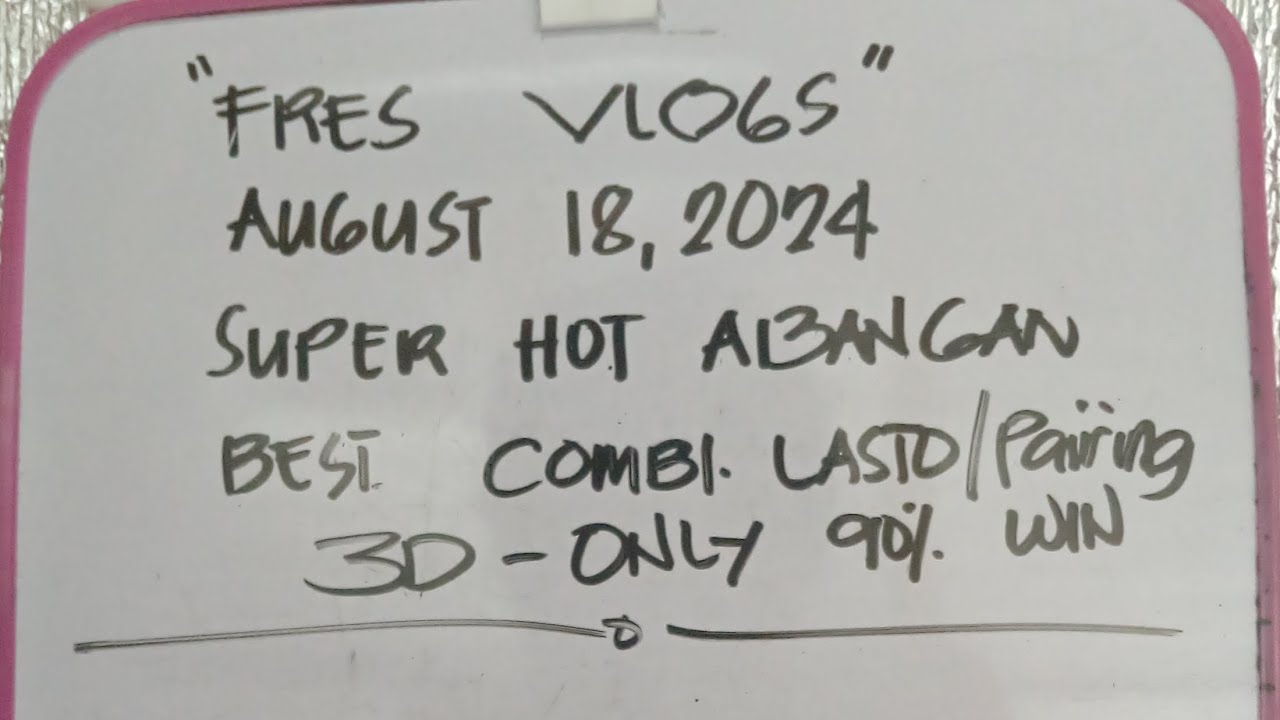 "FRES VLOGS"
AUGUST 18, 2024
SUPER HOT ABANGAN
BEST COMBI. LASTO/Pairing
3D - ONLY 90% WIN